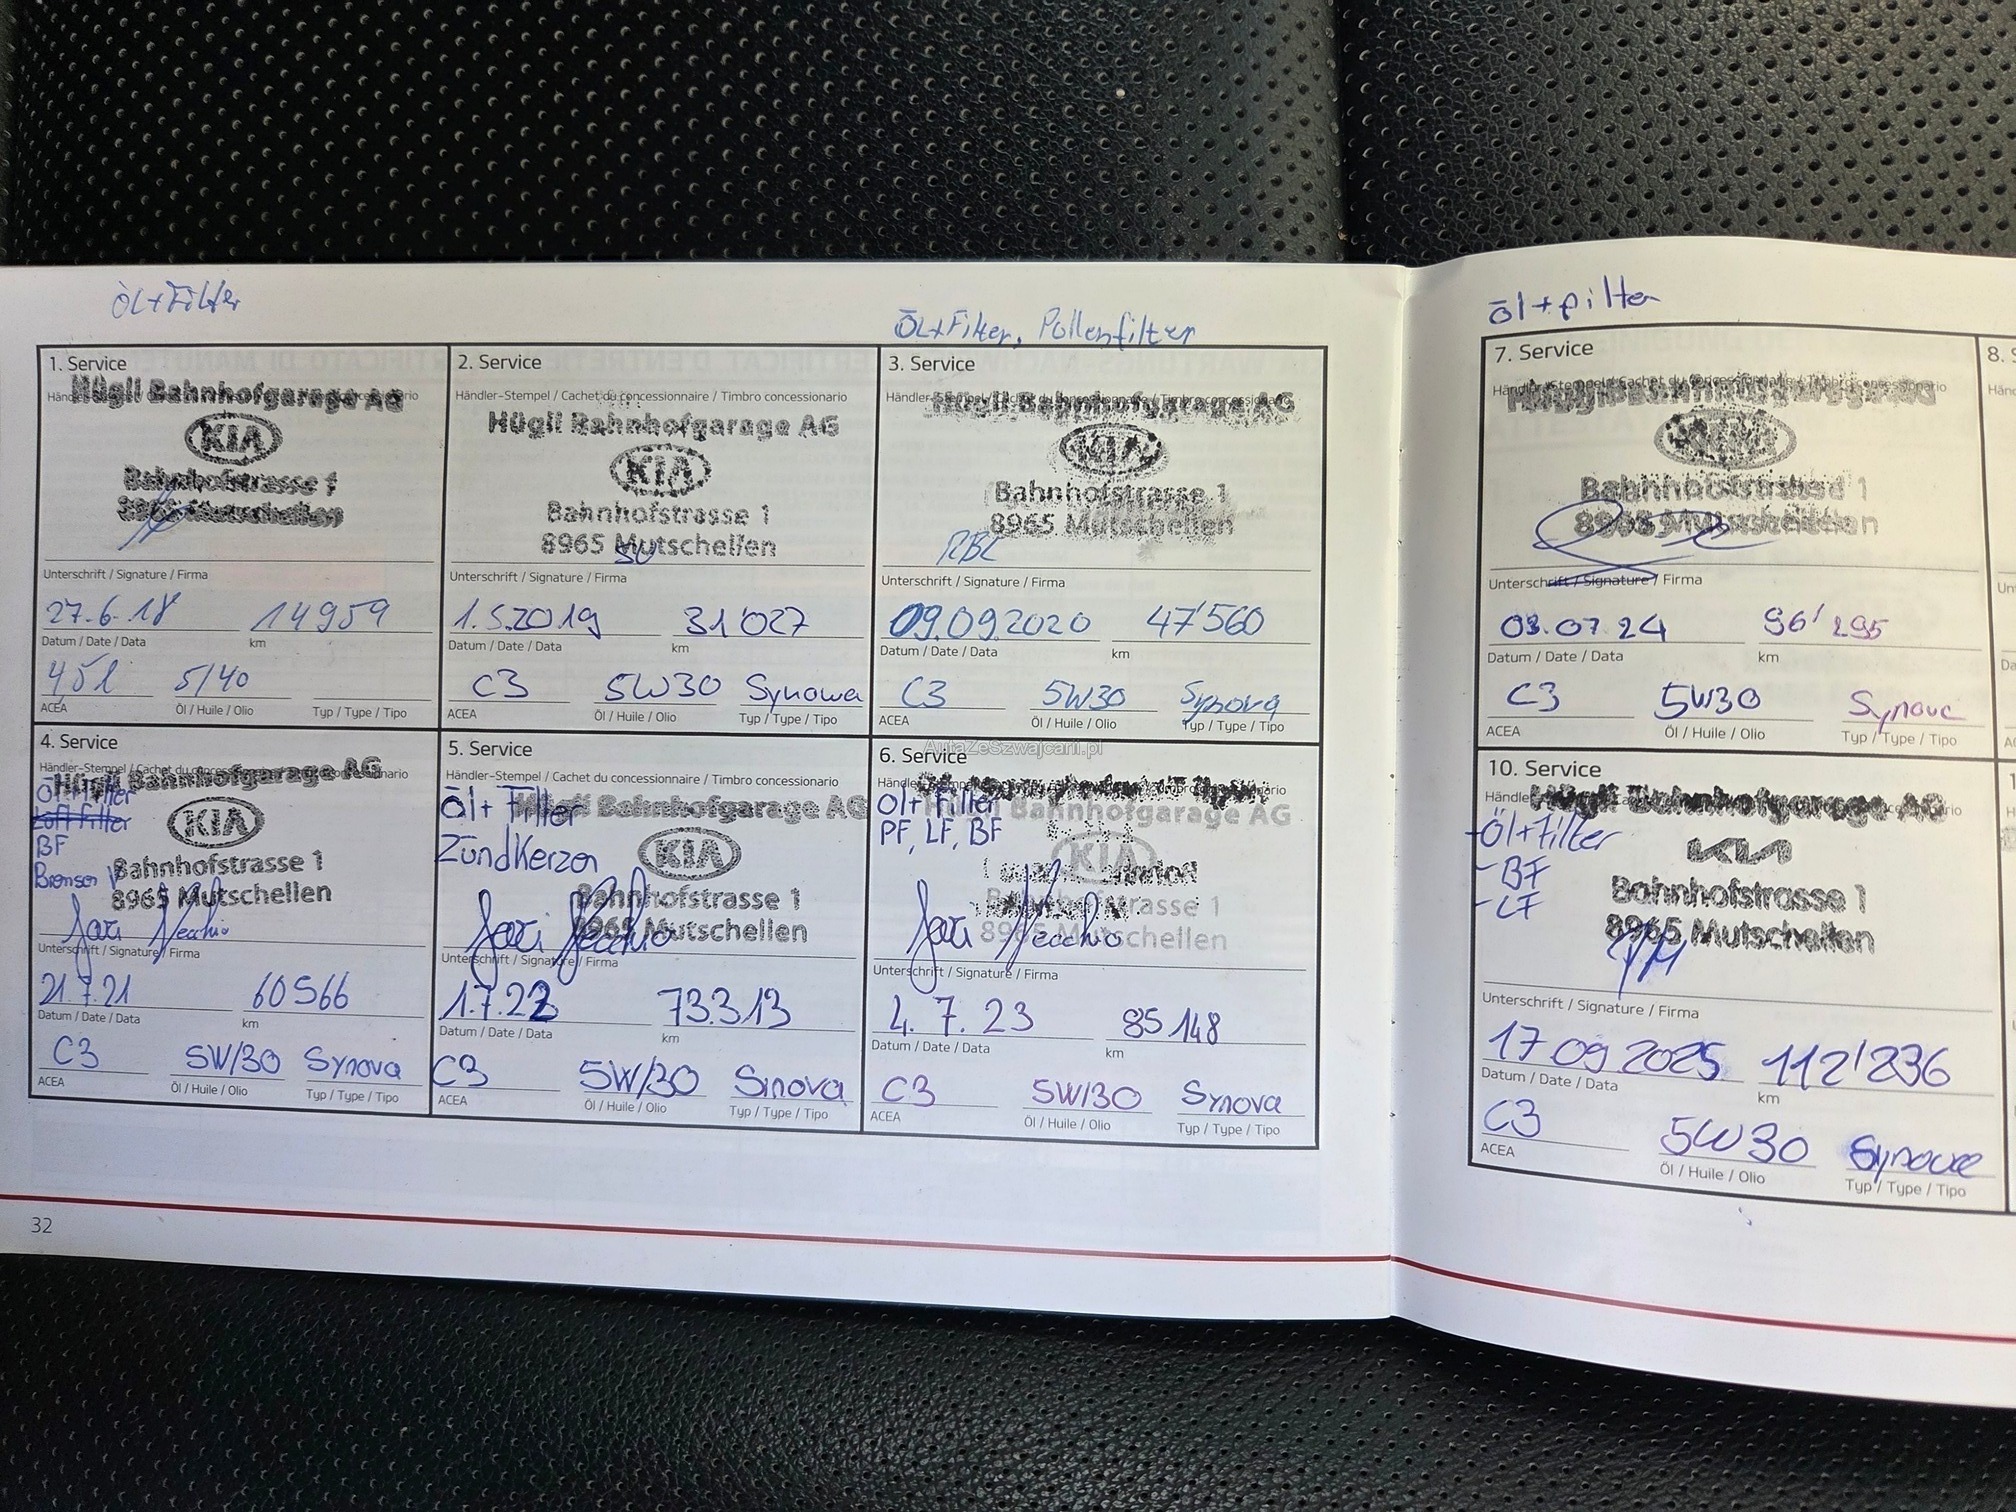 Öl+Filter
1. Service
Hügli Bahnhofgarage AG
KIA
Bahnhofstrasse 1
8965 Mutschellen
Unterschrift / Signature / Firma
27.6.18 14959
Datum / Date / Data km
4,5 l 5/40
ACEA Öl / Huile / Olio Typ / Type / Tipo
2. Service
Händler-Stempel / Cachet du concessionnaire / Timbro concessionario
Hügli Bahnhofgarage AG
KIA
Bahnhofstrasse 1
8965 Mutschellen
Unterschrift / Signature / Firma
1.5.2019 31'027
Datum / Date / Data km
C3 5W30 Synowa
ACEA Öl / Huile / Olio Typ / Type / Tipo
Öl+Filter, Pollenfilter
3. Service
Hügli Bahnhofgarage AG
KIA
Bahnhofstrasse 1
8965 Mutschellen
RBL
Unterschrift / Signature / Firma
09.09.2020 47'560
Datum / Date / Data km
C3 5W30 Synova
ACEA Öl / Huile / Olio Typ / Type / Tipo
4. Service
Hügli Bahnhofgarage AG
Öl+Filter
Luftfilter
KIA
BF
Bahnhofstrasse 1
8965 Mutschellen
Unterschrift / Signature / Firma
21.7.21 60566
Datum / Date / Data km
C3 5W/30 Synova
ACEA Öl / Huile / Olio Typ / Type / Tipo
5. Service
Händler-Stempel / Cachet du concessionnaire / Timbro concessionario
Öl+ Filter
Hügli Bahnhofgarage AG
Zündkerzen
KIA
Bahnhofstrasse 1
8965 Mutschellen
Unterschrift / Signature / Firma
1.7.22 73.313
Datum / Date / Data km
C3 5W/30 Sinova
ACEA Öl / Huile / Olio Typ / Type / Tipo
AutaZeSzwajcarii.pl
6. Service
Öl+ Filter
Hügli Bahnhofgarage AG
PF, LF, BF
KIA
Bahnhofstrasse 1
8965 Mutschellen
Unterschrift / Signature / Firma
4.7.23 85148
Datum / Date / Data km
C3 5W/30 Synova
ACEA Öl / Huile / Olio Typ / Type / Tipo
32
Öl+filter
7. Service
Händler-Stempel / Cachet du concessionnaire / Timbro concessionario
KIA
Bahnhofstrasse 1
8965 Mutschellen
Unterschrift / Signature / Firma
03.07.24 96'295
Datum / Date / Data km
C3 5W30
ACEA Öl / Huile / Olio Typ / Type / Tipo
8.
10. Service
Hügli Bahnhofgarage AG
-Öl+Filter
KIA
-BF
-LF
Bahnhofstrasse 1
8965 Mutschellen
Unterschrift / Signature / Firma
17.09.2025 112'236
Datum / Date / Data km
C3 5W30 Synova
ACEA Öl / Huile / Olio Typ / Type / Tipo